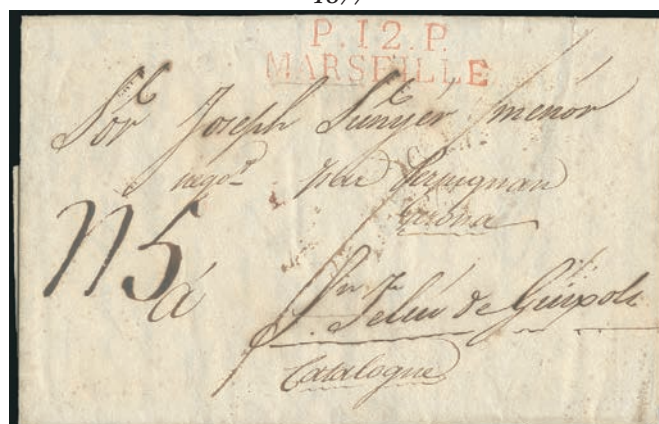 P.12.P.
MARSEILLE
Sor Joseph Sunyer menor
negot par Perpignan
Gerona
n5
á
Sn Feliu de Guixols
Catalogne